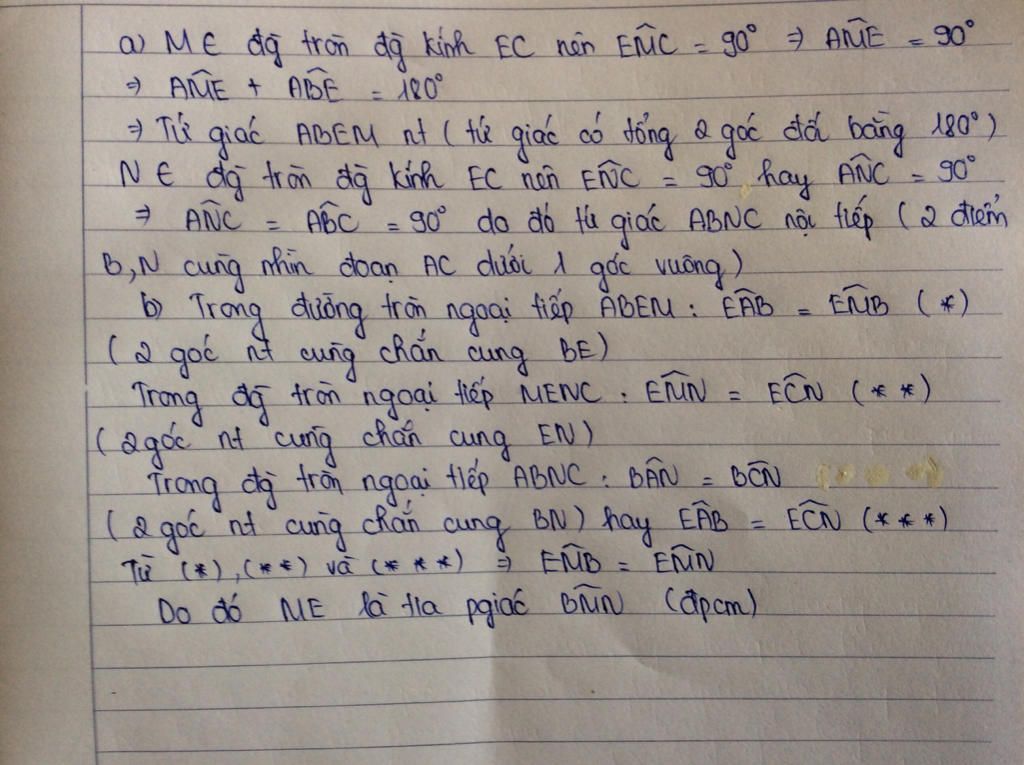 a) M ∈ đg̃ tròn đg̃ kính EC nên EM̂C = 90° ⇒ AM̂E = 90°
⇒ AM̂E + AB̂E = 180°
⇒ Tứ giác ABEM nt ( tứ giác có tổng 2 góc đối bằng 180°)
N ∈ đg̃ tròn đg̃ kính EC nên EN̂C = 90° hay AN̂C = 90°
⇒ AN̂C = AB̂C = 90° do đó tứ giác ABNC nội tiếp ( 2 điểm
B, N cùng nhìn đoạn AC dưới 1 góc vuông)
b) Trong đường tròn ngoại tiếp ABEM : EÂB = EM̂B (*)
( 2 góc nt cùng chắn cung BE)
Trong đg̃ tròn ngoại tiếp MENC : EM̂N = EĈN (* *)
( 2 góc nt cùng chắn cung EN)
Trong đg̃ tròn ngoại tiếp ABNC : BÂN = BĈN
( 2 góc nt cùng chắn cung BN) hay EÂB = EĈN (* * *)
Từ (*), (* *) và (* * *) ⇒ EM̂B = EM̂N
Do đó ME là tia pgiác BM̂N (đpcm)